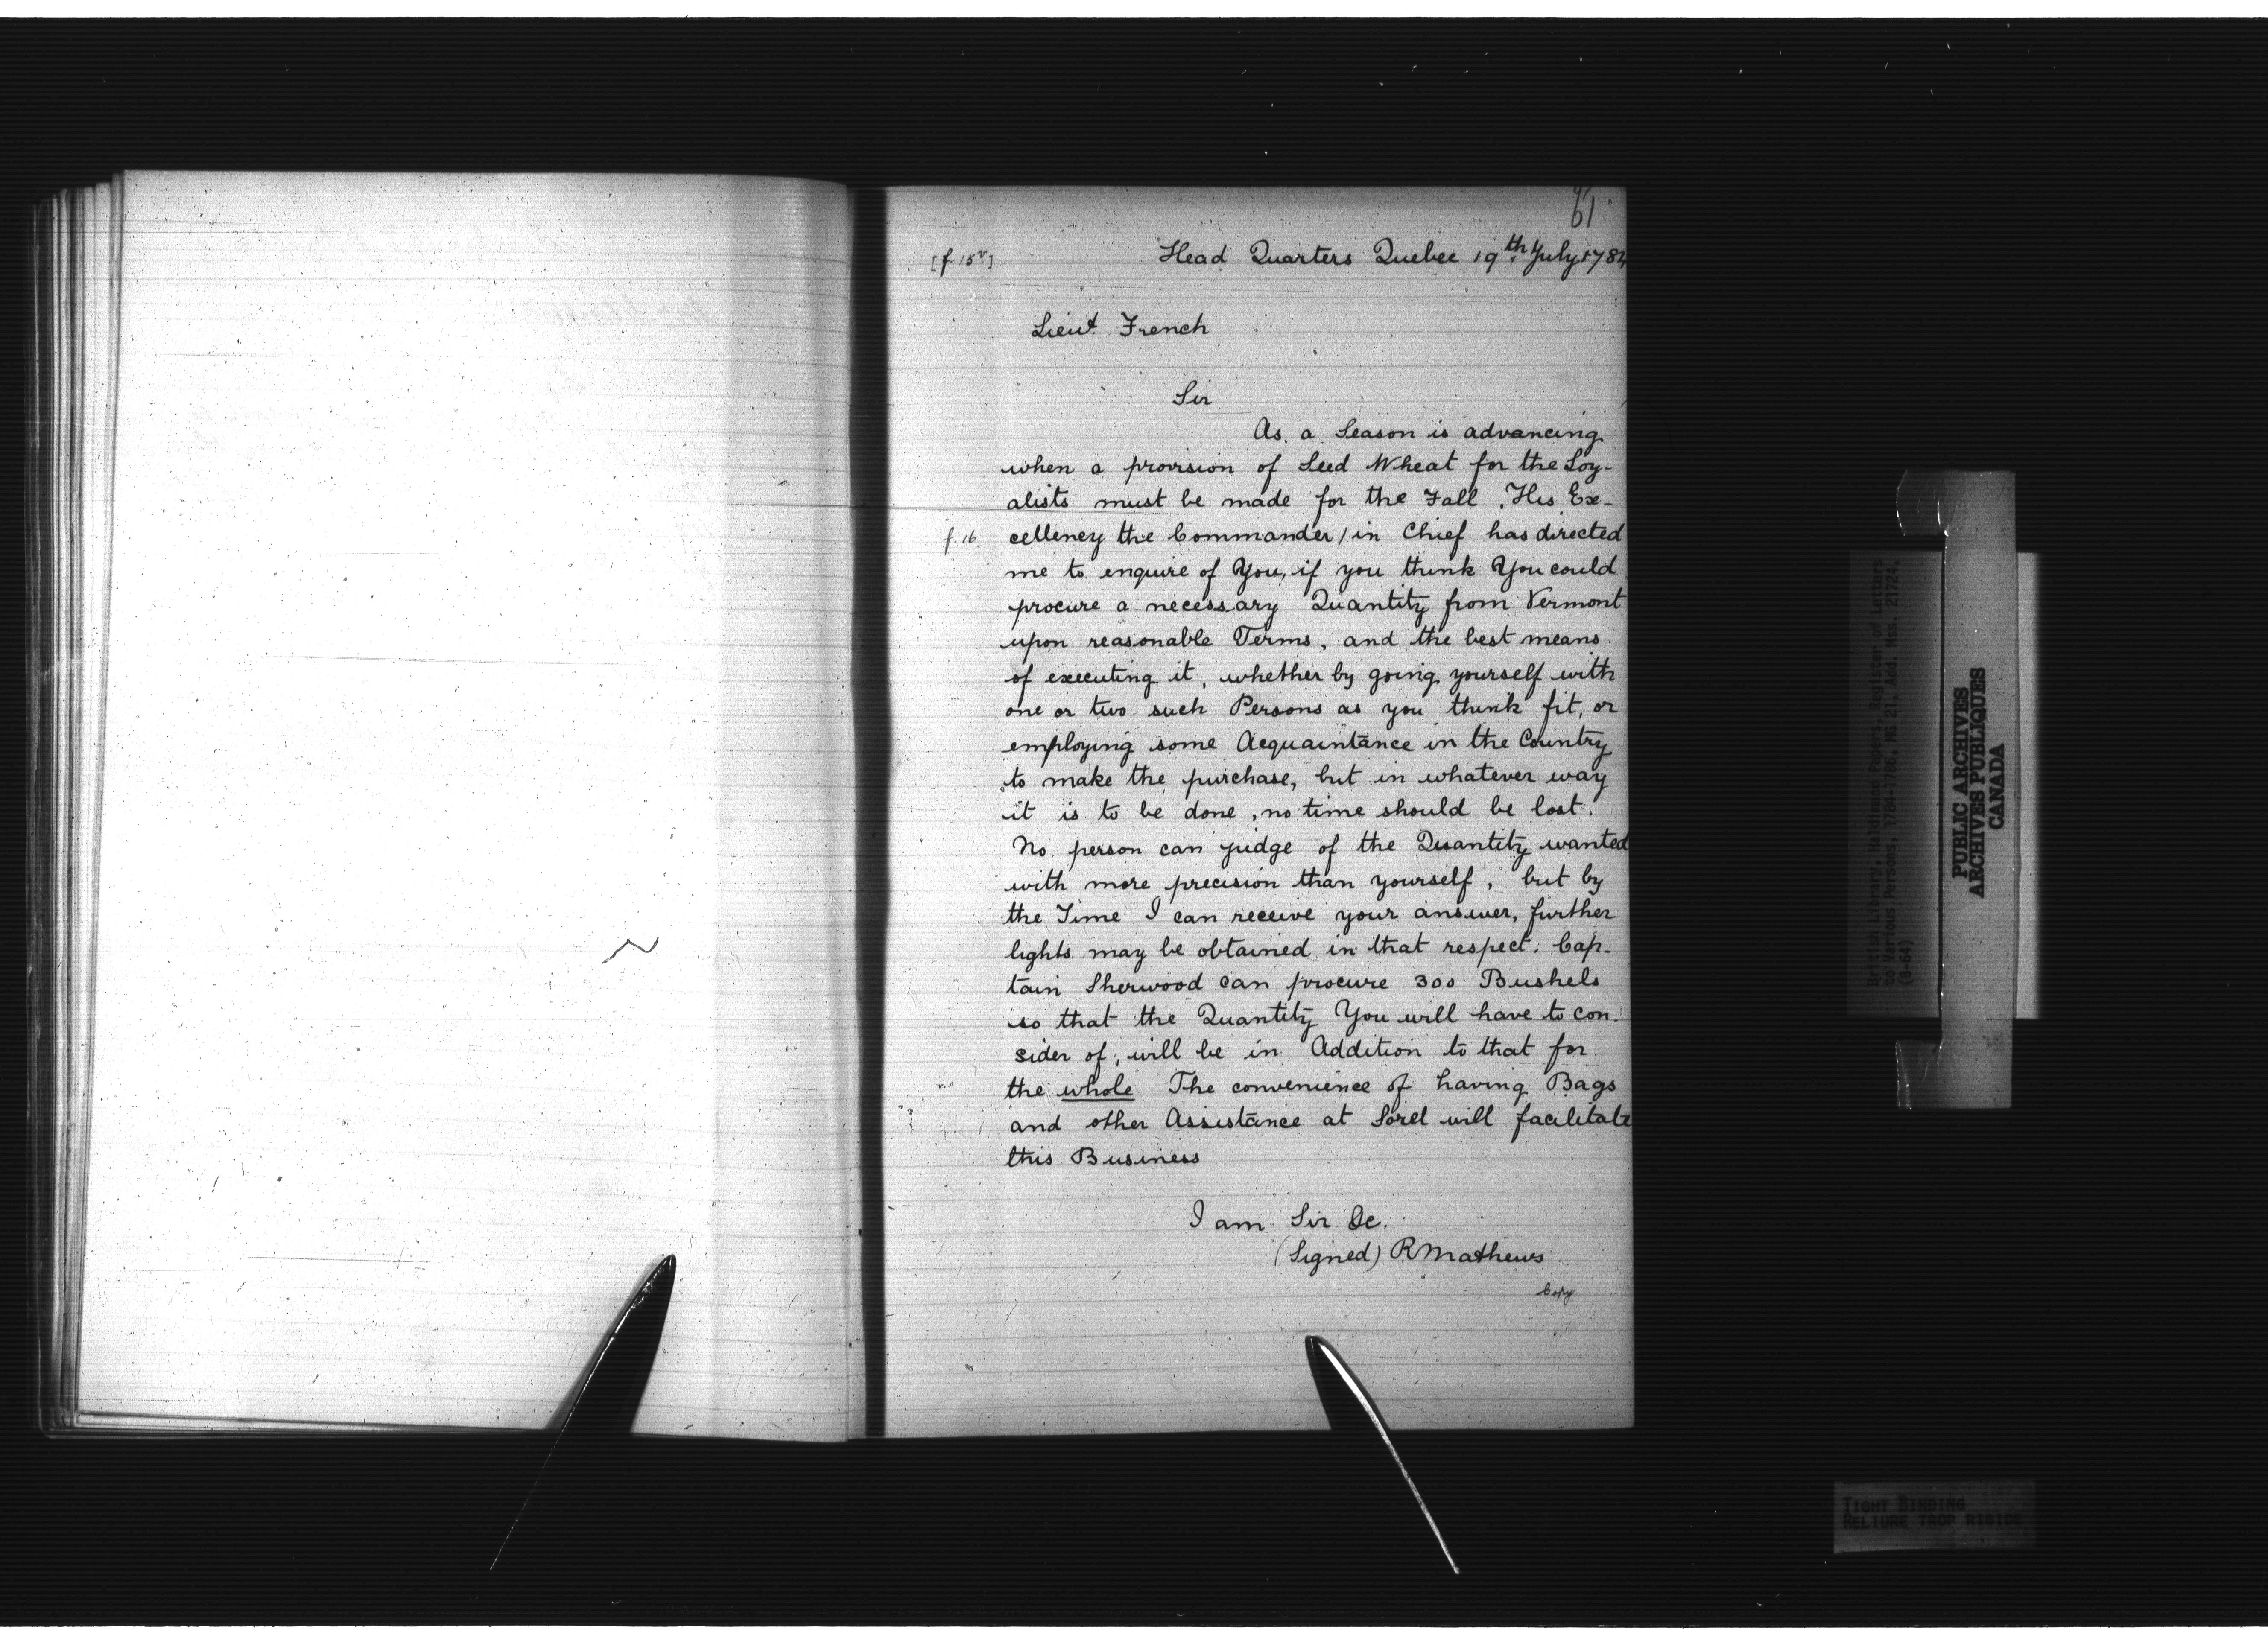 61
[f. 15v] Head Quarters Quebec 19th July 1784
Lieut. French
Sir
As a Season is advancing
when a provision of Seed Wheat for the Loy-
alists must be made for the Fall, His Ex-
f. 16 cellency the Commander / in Chief has directed
me to enquire of You, if you think You could
procure a necessary Quantity from Vermont
upon reasonable Terms, and the best means
of executing it, whether by going yourself with
one or two such Persons as you think fit, or
employing some Acquaintance in the Country
to make the purchase, but in whatever way
it is to be done, no time should be lost.
No person can judge of the Quantity wanted
with more precision than yourself, but by
the Time I can receive your answer, further
lights may be obtained in that respect. Cap-
tain Sherwood can procure 300 Bushels
so that the Quantity You will have to con-
sider of, will be in Addition to that for
the whole The convenience of having Bags
and other Assistance at Sorel will facilitate
this Business
I am Sir &c.
(Signed) R Mathews
Copy
British Library, Haldimand Papers, Register of Letters
to Various Persons, 1784-1786, MG 21, Add. Mss. 21724,
(B-64)
PUBLIC ARCHIVES
ARCHIVES PUBLIQUES
CANADA
TIGHT BINDING
RELIURE TROP RIGIDE